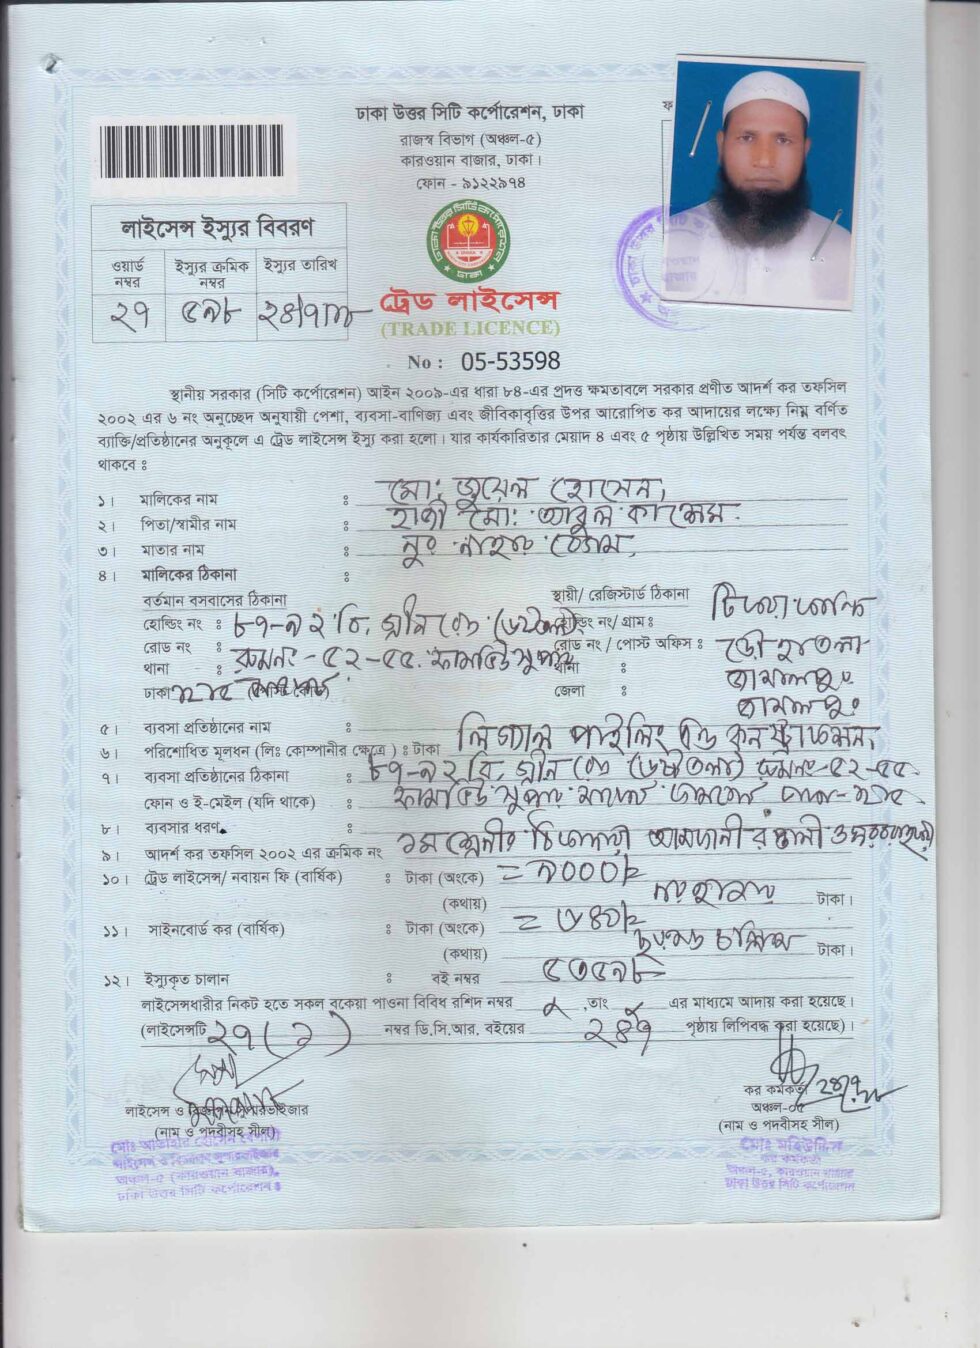 ঢাকা উত্তর সিটি কর্পোরেশন, ঢাকা
রাজস্ব বিভাগ (অঞ্চল-৫)
কারওয়ান বাজার, ঢাকা।
ফোন - ৯১২২৯৭৪
লাইসেন্স ইস্যুর বিবরণ
ওয়ার্ড নম্বর ইস্যুর ক্রমিক নম্বর ইস্যুর তারিখ
২৭ ৫৯৮
ট্রেড লাইসেন্স
(TRADE LICENCE)
No : 05-53598
স্থানীয় সরকার (সিটি কর্পোরেশন) আইন ২০০৯-এর ধারা ৮৪-এর প্রদত্ত ক্ষমতাবলে সরকার প্রণীত আদর্শ কর তফসিল
২০০২ এর ৬ নং অনুচ্ছেদ অনুযায়ী পেশা, ব্যবসা-বাণিজ্য এবং জীবিকাবৃত্তির উপর আরোপিত কর আদায়ের লক্ষ্যে নিম্ন বর্ণিত
ব্যাক্তি/প্রতিষ্ঠানের অনুকূলে এ ট্রেড লাইসেন্স ইস্যু করা হলো। যার কার্যকারিতার মেয়াদ ৪ এবং ৫ পৃষ্ঠায় উল্লিখিত সময় পর্যন্ত বলবৎ
থাকবে ঃ
১। মালিকের নাম ঃ মোঃ জুয়েল হোসেন,
২। পিতা/স্বামীর নাম ঃ হাজী মোঃ আবুল কাশেম
৩। মাতার নাম ঃ নুর নাহার বেগম,
৪। মালিকের ঠিকানা ঃ
বর্তমান বসবাসের ঠিকানা স্থায়ী/ রেজিস্টার্ড ঠিকানা
হোল্ডিং নং ঃ ৮৭-৯২ বি, গ্রীন রোড হোল্ডিং নং/ গ্রাম ঃ
রোড নং ঃ রুমনং-৫২-৫৫ রোড নং / পোস্ট অফিস ঃ
থানা ঃ থানা ঃ জামালপুর
ঢাকা জেলা ঃ জামালপুর
৫। ব্যবসা প্রতিষ্ঠানের নাম ঃ পাইলিং এন্ড কনস্ট্রাকশন,
৬। পরিশোধিত মূলধন (লিঃ কোম্পানীর ক্ষেত্রে) ঃ টাকা
৭। ব্যবসা প্রতিষ্ঠানের ঠিকানা ঃ ৮৭-৯২ বি, গ্রীন রোড রুমনং-৫২-৫৫
ফোন ও ই-মেইল (যদি থাকে) ঃ
৮। ব্যবসার ধরণ ঃ
৯। আদর্শ কর তফসিল ২০০২ এর ক্রমিক নং ১ম শ্রেনীর ঠিকাদারী আমদানী রপ্তানী ও সরবরাহকারী
১০। ট্রেড লাইসেন্স/ নবায়ন ফি (বার্ষিক) ঃ টাকা (অংকে) = ৯০০০/=
(কথায়) নয় হাজার টাকা।
১১। সাইনবোর্ড কর (বার্ষিক) ঃ টাকা (অংকে) = ৬৪০/=
(কথায়) ছয়শত চল্লিশ টাকা।
১২। ইস্যুকৃত চালান ঃ বই নম্বর ৫৩৫৯৮
লাইসেন্সধারীর নিকট হতে সকল বকেয়া পাওনা বিবিধ রশিদ নম্বর ,তাং এর মাধ্যমে আদায় করা হয়েছে।
(লাইসেন্সটি ২৭(১) নম্বর ডি.সি.আর. বইয়ের পৃষ্ঠায় লিপিবদ্ধ করা হয়েছে)।
লাইসেন্স ও বিজ্ঞাপন সুপারভাইজার
(নাম ও পদবীসহ সীল)
কর কর্মকর্তা
অঞ্চল-০৫
(নাম ও পদবীসহ সীল)
লাইসেন্স ও বিজ্ঞাপন সুপারভাইজার
অঞ্চল-৫ (কারওয়ান বাজার),
ঢাকা উত্তর সিটি কর্পোরেশন।
মোঃ মহিউদ্দিন
কর কর্মকর্তা
অঞ্চল-৫, কারওয়ান বাজার
ঢাকা উত্তর সিটি কর্পোরেশন